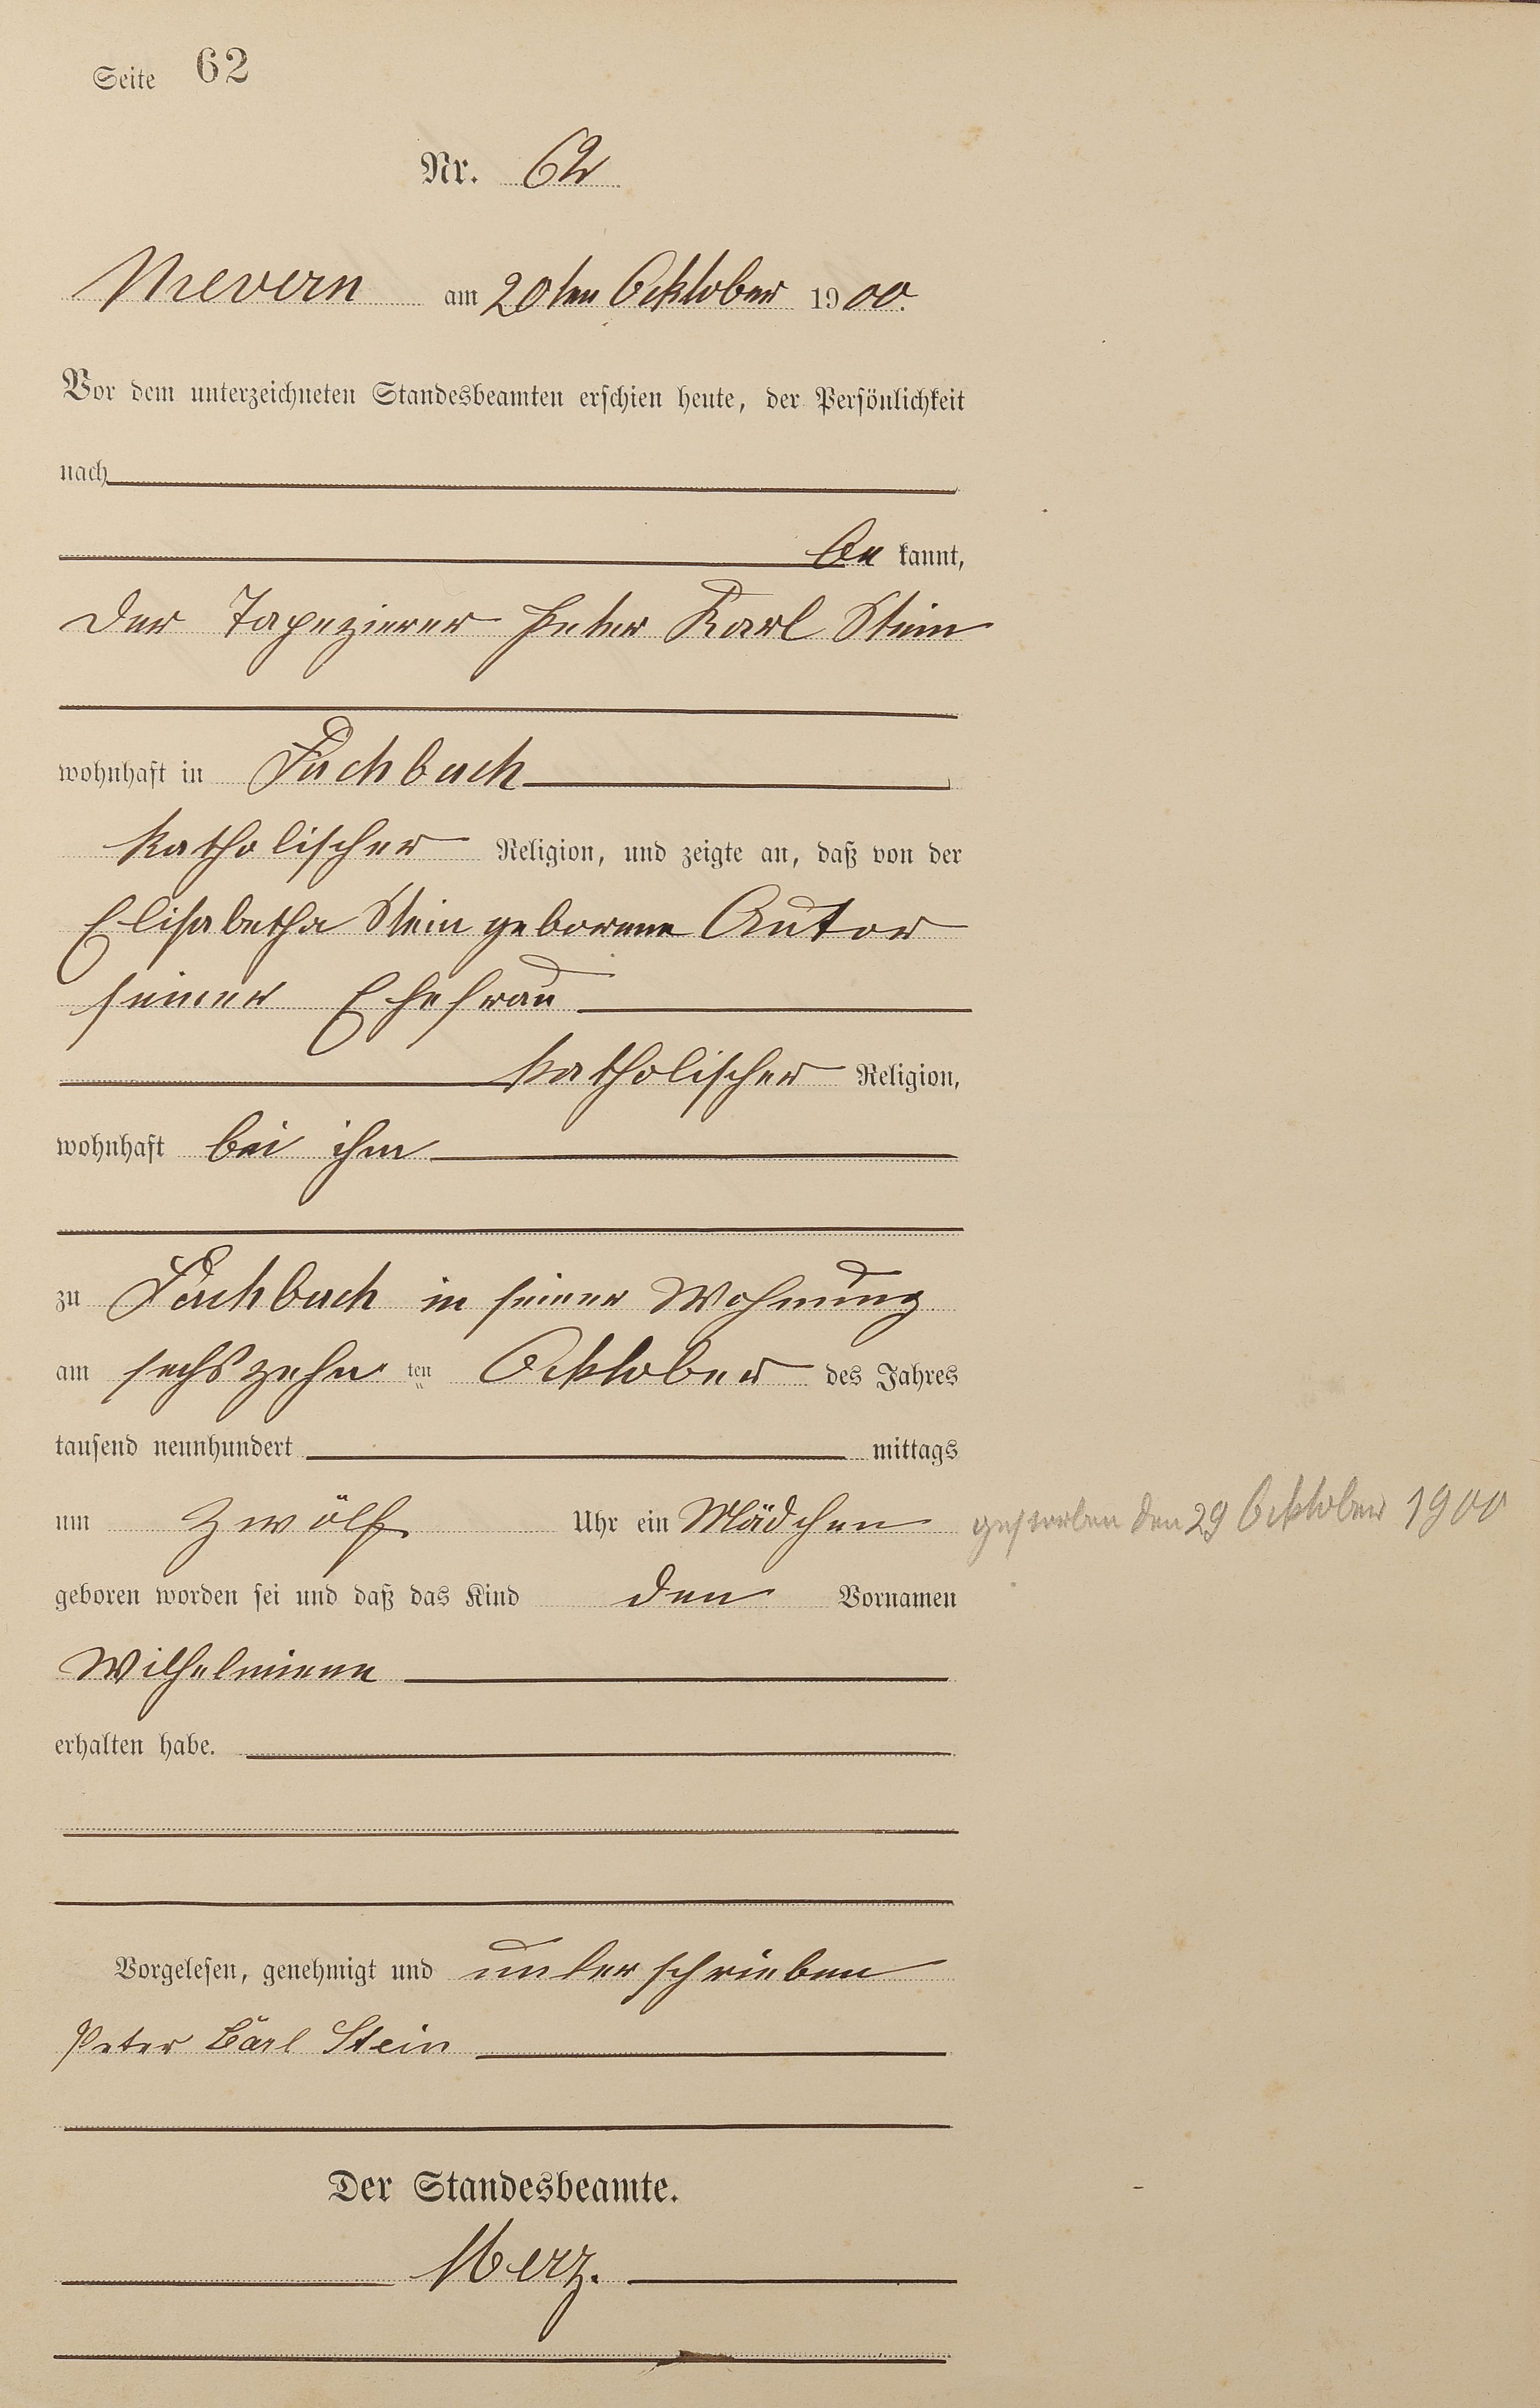 Seite 62
Nr. 62
Nievern am 20ten Oktober 1900.
Vor dem unterzeichneten Standesbeamten erschien heute, der Persönlichkeit
nach
be kannt,
der Tapezierer Peter Karl Stein
wohnhaft in Fachbach
katholischer Religion, und zeigte an, daß von der
Elisabetha Stein geborene Autor
seiner Ehefrau
katholischer Religion,
wohnhaft bei ihm
zu Fachbach in seiner Wohnung
am sechszehn ten Oktober des Jahres
tausend neunhundert mittags
um zwölf Uhr ein Mädchen
gestorben den 29 Oktober 1900
geboren worden sei und daß das Kind den Vornamen
Wilhelmiene
erhalten habe.
Vorgelesen, genehmigt und unterschrieben
Peter Carl Stein
Der Standesbeamte.
Merz.